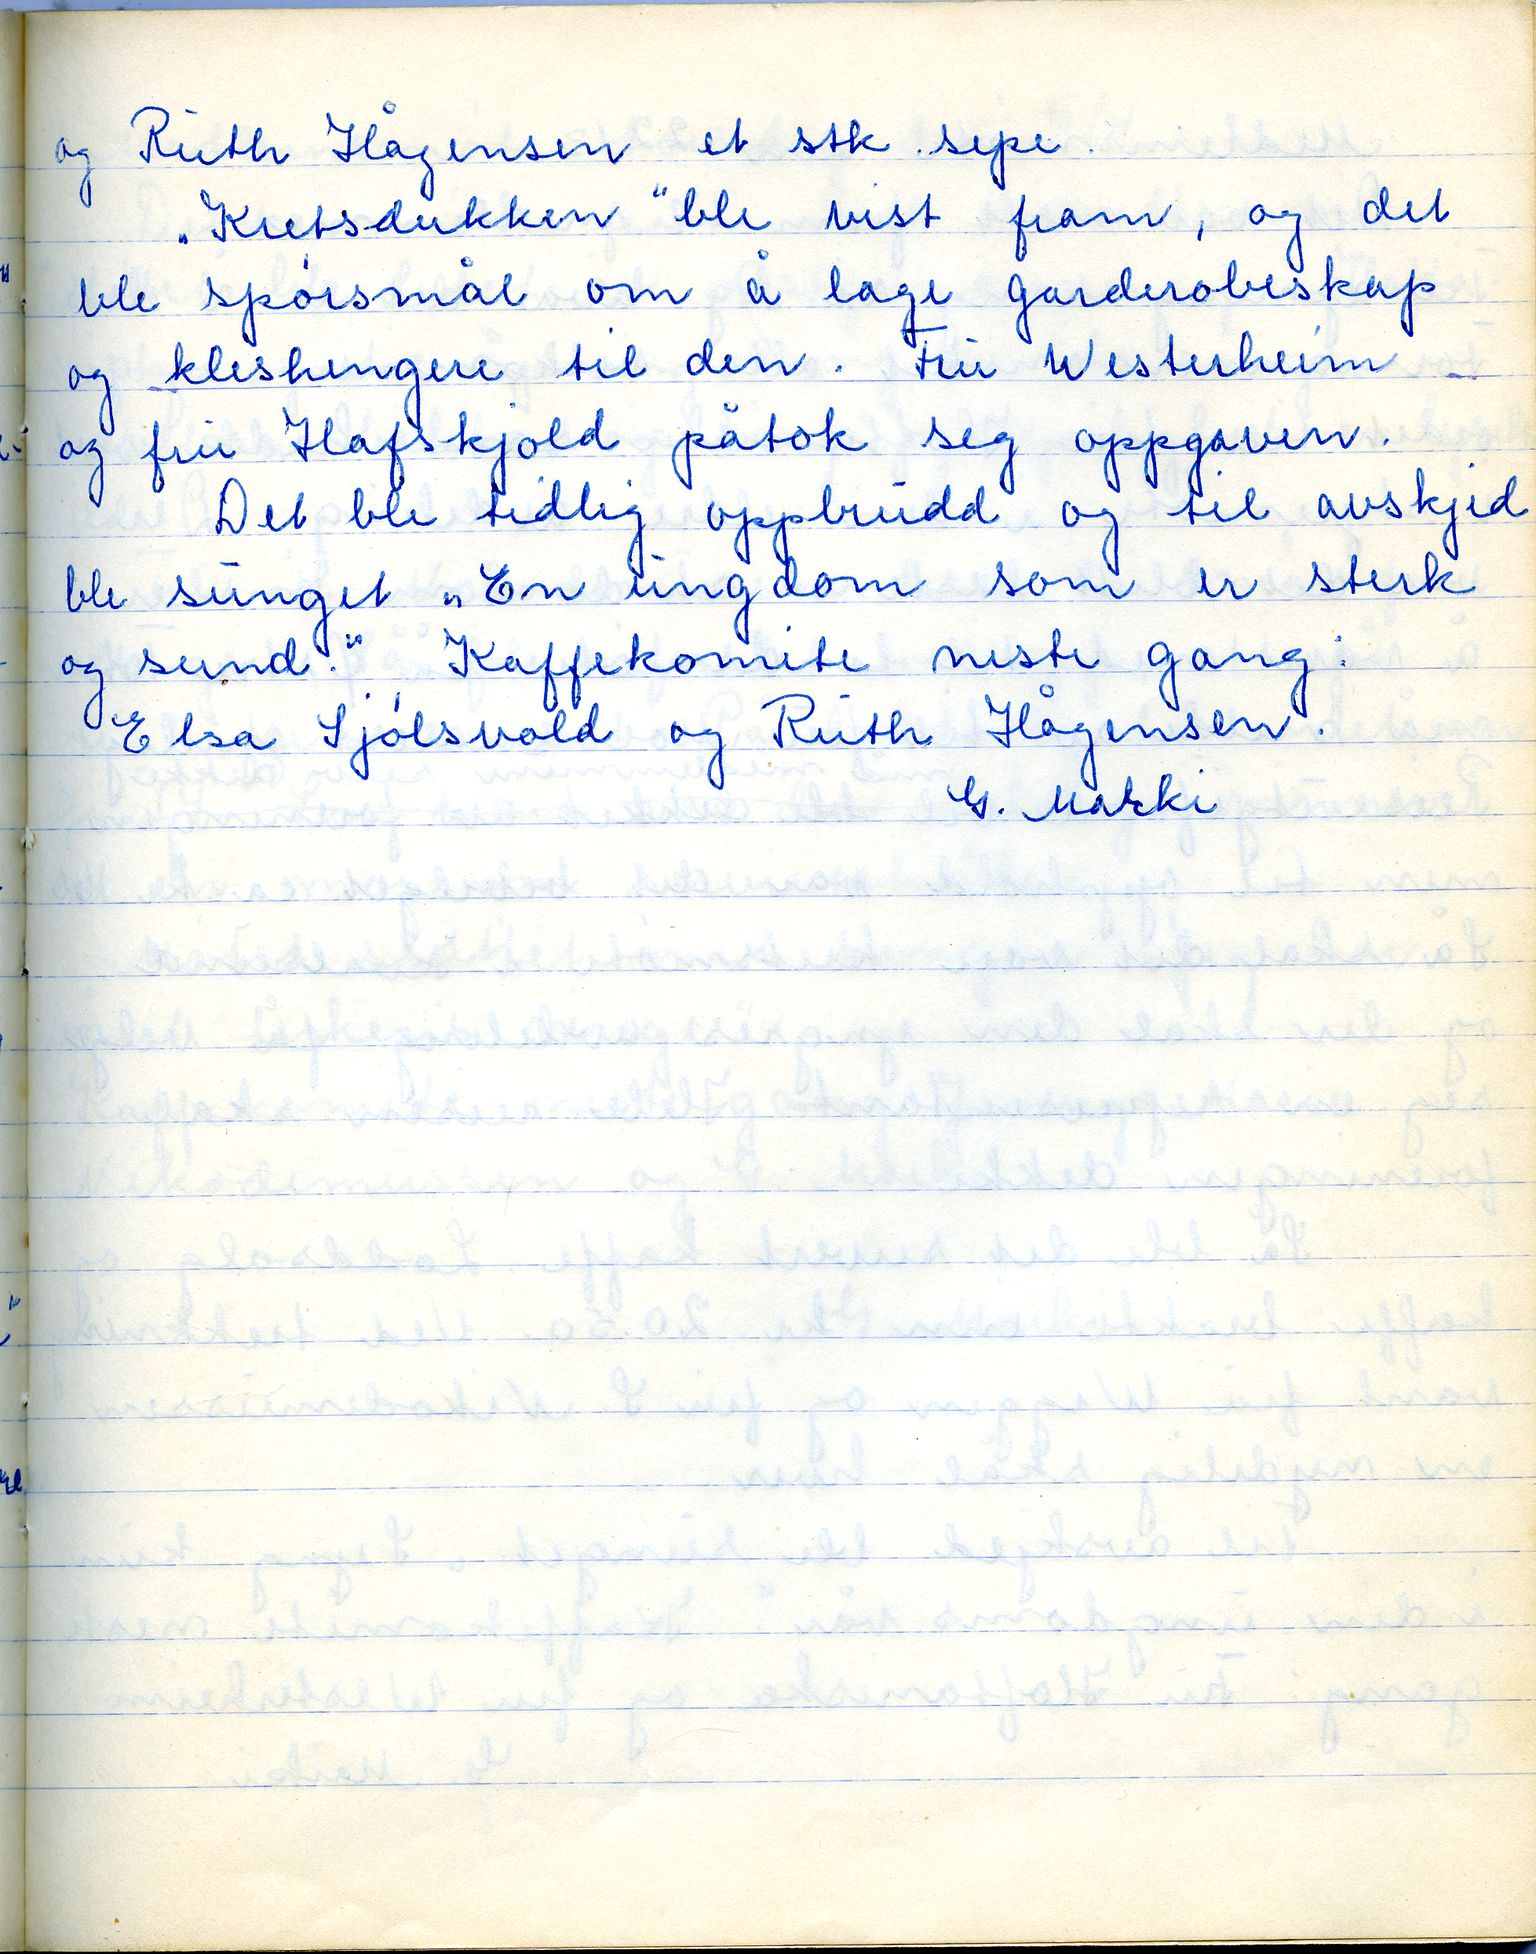 og Ruth Hågensen et stk. sepe.
„Kretsdukken" ble vist fram, og det
ble spørsmål om å lage garderobeskap
og kleshengere til den. Fru Westerheim
og fru Hafskjold påtok seg oppgaven.
Det ble tidlig oppbrudd og til avskjed
ble sunget „En ungdom som er sterk
og sund." Kaffekomite neste gang:
Elsa Sjølsvold og Ruth Hågensen.
G. Marki